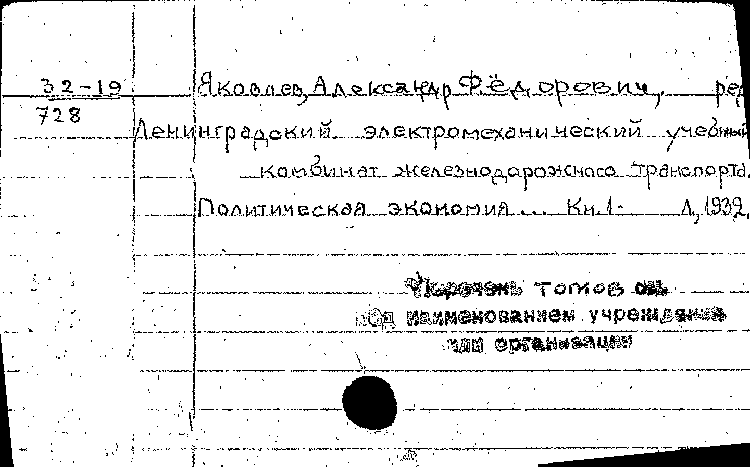 32-19
728
Яковлев, Александр Фёдорович, ред
Ленинградский электромеханический учебный
комбинат железнодорожного транспорта.
Политическая экономия... Кн.1- Л, 1932.
Перечень томов см.
под наименованием учреждения
или организации